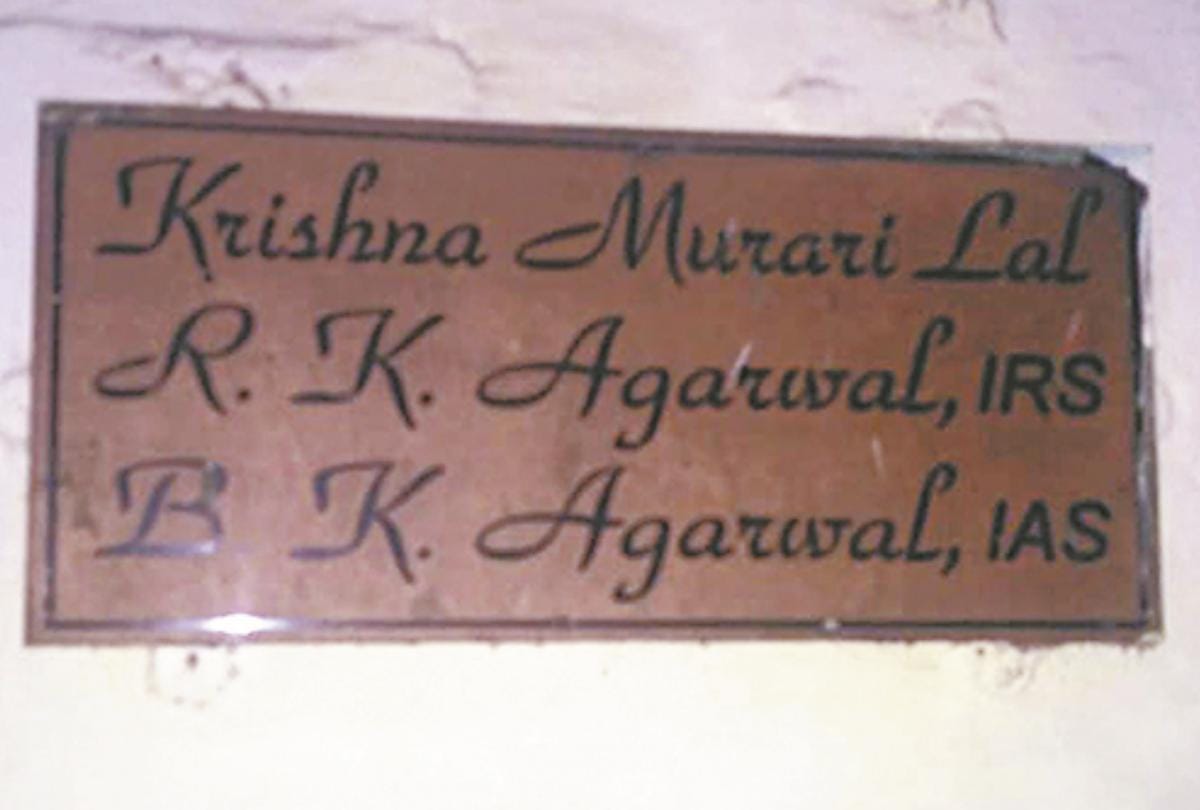 Krishna Murari Lal
R. K. Agarwal, IRS
B K. Agarwal, IAS